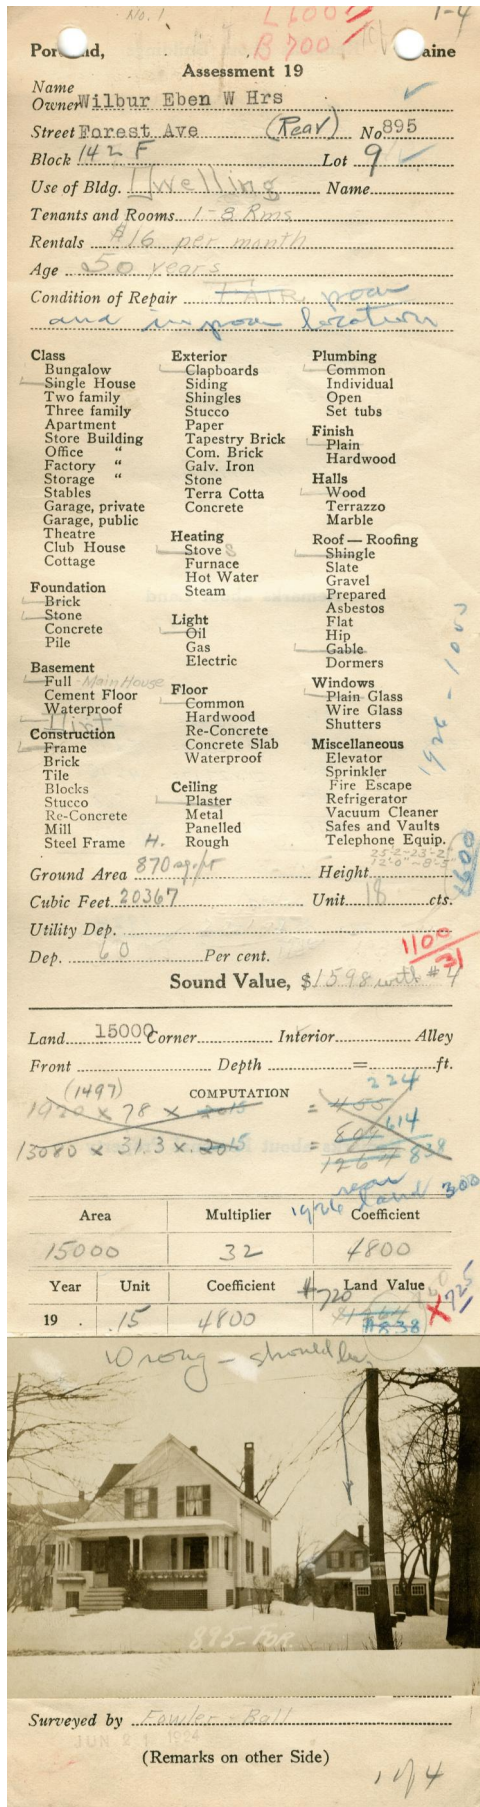 No. 1
L 600
B 700
1-4
Portland, Maine
Assessment 19
Name
Owner Wilbur Eben W Hrs
Street Forest Ave (Rear) No 895
Block 142 F Lot 9
Use of Bldg. Dwelling Name
Tenants and Rooms 1-8 Rms
Rentals $16 per month
Age 50 years
Condition of Repair FAIR, poor
and in poor location
Class
Bungalow
Single House
Two family
Three family
Apartment
Store Building
Office "
Factory "
Storage "
Stables
Garage, private
Garage, public
Theatre
Club House
Cottage
Foundation
Brick
Stone
Concrete
Pile
Basement
Full - Main House
Cement Floor
Waterproof
Dirt
Construction
Frame
Brick
Tile
Blocks
Stucco
Re-Concrete
Mill
Steel Frame
Exterior
Clapboards
Siding
Shingles
Stucco
Paper
Tapestry Brick
Com. Brick
Galv. Iron
Stone
Terra Cotta
Concrete
Heating
Stove s
Furnace
Hot Water
Steam
Light
Oil
Gas
Electric
Floor
Common
Hardwood
Re-Concrete
Concrete Slab
Waterproof
Ceiling
Plaster
Metal
Panelled
H. Rough
Plumbing
Common
Individual
Open
Set tubs
Finish
Plain
Hardwood
Halls
Wood
Terrazzo
Marble
Roof — Roofing
Shingle
Slate
Gravel
Prepared
Asbestos
Flat
Hip
Gable
Dormers
Windows
Plain Glass
Wire Glass
Shutters
Miscellaneous
Elevator
Sprinkler
Fire Escape
Refrigerator
Vacuum Cleaner
Safes and Vaults
Telephone Equip.
1600
Ground Area 870 sq. ft Height
Cubic Feet 20367 Unit 18 cts.
Utility Dep.
1100
31
Dep. 60 Per cent.
Sound Value, $1598 with #4
Land 15000 Corner Interior Alley
Front Depth = ft.
(1497) COMPUTATION 224
1920 x 78 x 2015 = 455
614
13080 x 31.3 x 2015 = 804
1264 838
1926 rear land 300
Area Multiplier Coefficient
15000 32 4800
Year Unit Coefficient Land Value
$720
725
19 .15 4800 $1264
$838
Wrong - should be
895-FOR.
Surveyed by Fowler - Ball
JUN 21 1924
(Remarks on other Side)
1 of 4